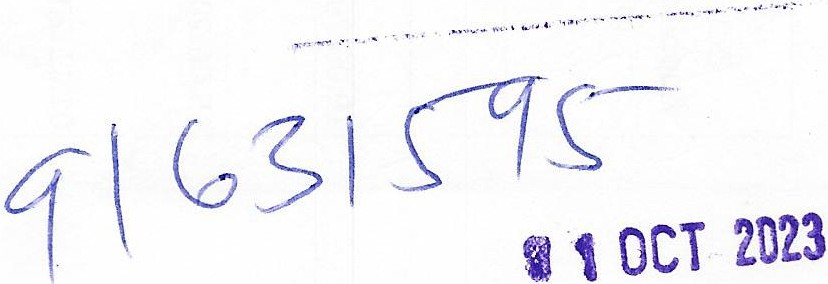 91631595
1 OCT 2023